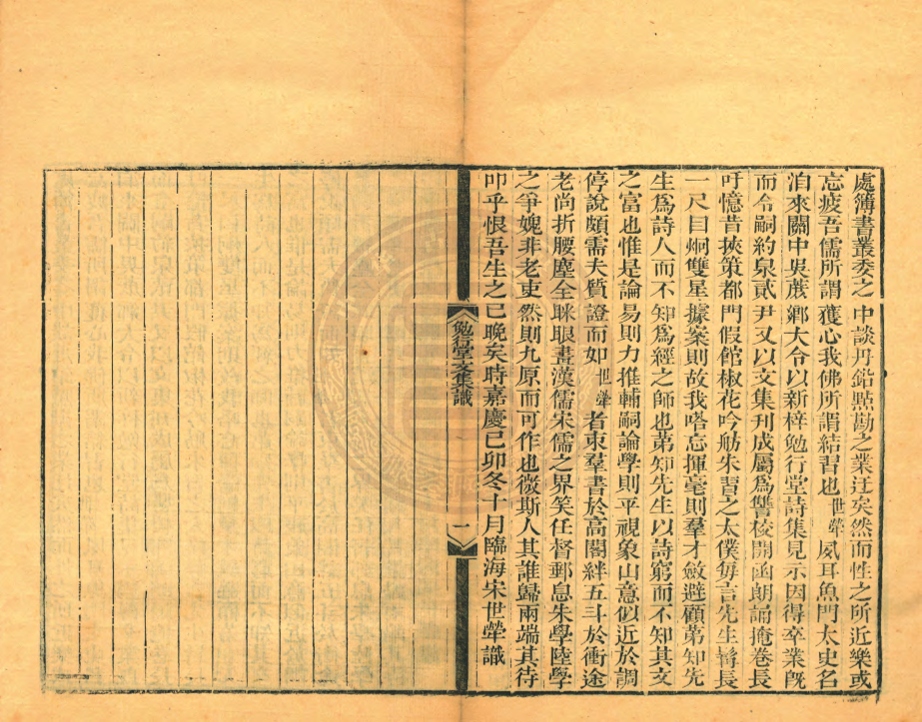 處簿書叢委之中談丹鉛點勘之業迂矣然而性之所近樂或
忘疲吾儒所謂獲心我佛所謂結習也世犖夙耳魚門太史名
泊來關中吳蔗鄉大令以新梓勉行堂詩集見示因得卒業旣
而令嗣約泉貳尹又以文集刊成屬爲讐校開函朗誦掩卷長
吁憶昔挾策都門假館椒花吟舫朱習之太僕每言先生髯長
一尺目炯雙星據案則故我嗒忘揮毫則羣才斂避顧第知先
生爲詩人而不知爲經之師也第知先生以詩窮而不知其文
之富也惟是論易則力推輔嗣論學則平視象山意似近於調
停說頗需夫質證而如世犖者束羣書於高閣絆五斗於衝途
老尚折腰塵全眯眼畫漢儒宋儒之界笑任督郵息朱學陸學
之爭媿非老吏然則九原而可作也微斯人其誰歸兩端其待
叩乎恨吾生之已晚矣時嘉慶己卯冬十月臨海宋世犖識
勉行堂文集識
一